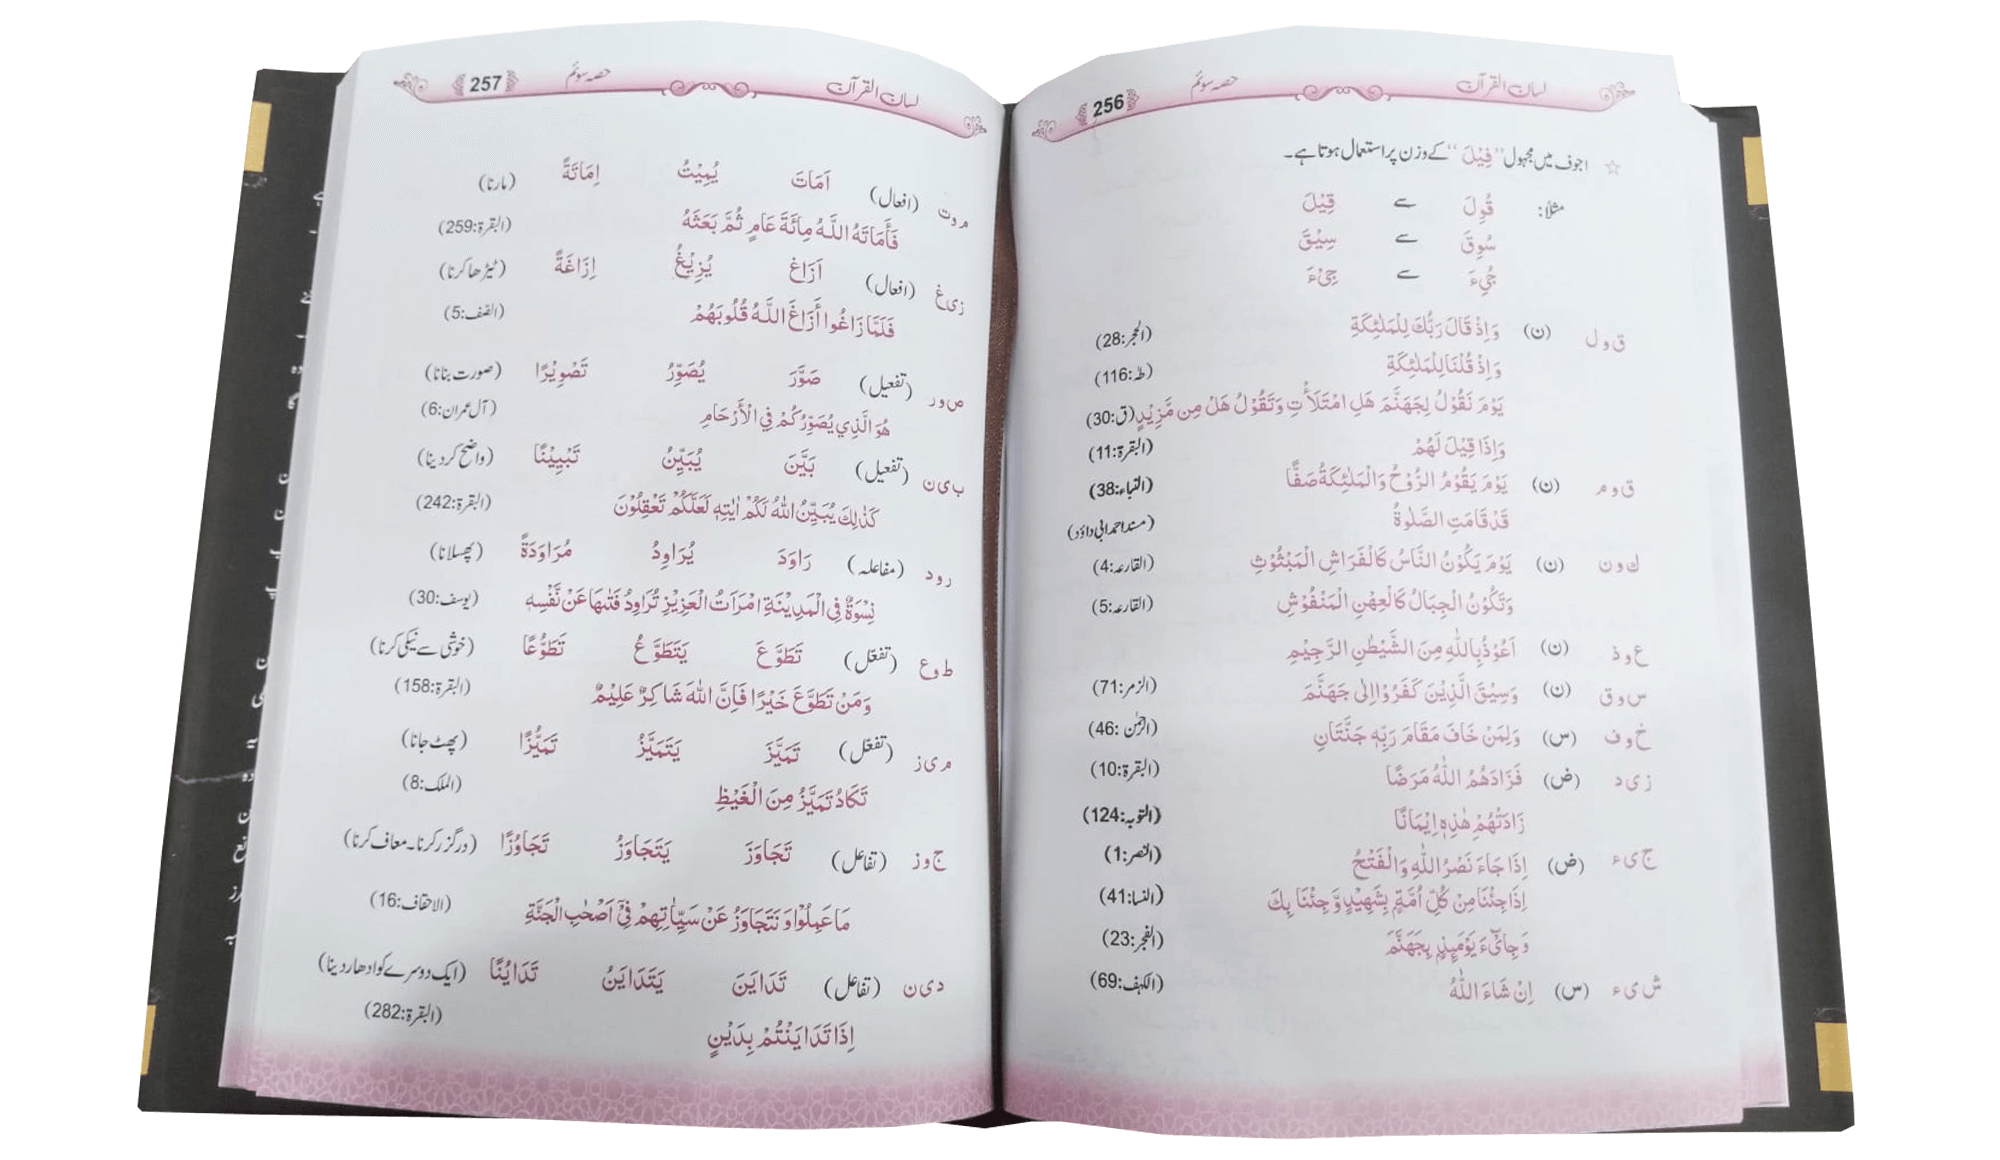 لسان القرآن حصہ سوئم 256
☆ اجوف میں مجہول ”فِيْلَ“ کے وزن پر استعمال ہوتا ہے۔
مثلاً: قُوِلَ سے قِيْلَ
سُوِقَ سے سِيْقَ
جُيِءَ سے جِيْءَ
ق و ل (ن) وَاِذْ قَالَ رَبُّكَ لِلْمَلٰئِكَةِ (الحجر:28)
وَاِذْ قُلْنَا لِلْمَلٰئِكَةِ (طٰہٰ:116)
يَوْمَ نَقُوْلُ لِجَهَنَّمَ هَلِ امْتَلَأْتِ وَتَقُوْلُ هَلْ مِن مَّزِيْدٍ (ق:30)
وَاِذَا قِيْلَ لَهُمْ (البقرة:11)
ق و م (ن) يَوْمَ يَقُوْمُ الرُّوْحُ وَالْمَلٰئِكَةُ صَفًّا (النباء:38)
قَدْ قَامَتِ الصَّلٰوةُ (مسند احمد ابی داؤد)
ك و ن (ن) يَوْمَ يَكُوْنُ النَّاسُ كَالْفَرَاشِ الْمَبْثُوْثِ (القارعہ:4)
وَتَكُوْنُ الْجِبَالُ كَالْعِهْنِ الْمَنْفُوْشِ (القارعہ:5)
ع و ذ (ن) اَعُوْذُ بِاللّٰهِ مِنَ الشَّيْطٰنِ الرَّجِيْمِ
س و ق (ن) وَسِيْقَ الَّذِيْنَ كَفَرُوْا اِلٰى جَهَنَّمَ (الزمر:71)
خ و ف (س) وَلِمَنْ خَافَ مَقَامَ رَبِّهٖ جَنَّتَانِ (الرحمٰن:46)
ز ی د (ض) فَزَادَهُمُ اللّٰهُ مَرَضًا (البقرة:10)
زَادَتْهُمْ هٰذِهٖ اِيْمَانًا (التوبہ:124)
ج ی ء (ض) اِذَا جَاءَ نَصْرُ اللّٰهِ وَالْفَتْحُ (النصر:1)
اِذَا جِئْنَا مِنْ كُلِّ اُمَّةٍ بِشَهِيْدٍ وَّجِئْنَا بِكَ (النسا:41)
وَجِايْٓءَ يَوْمَئِذٍ بِجَهَنَّمَ (الفجر:23)
ش ی ء (س) اِنْ شَاءَ اللّٰهُ (الکہف:69)
لسان القرآن حصہ سوئم 257
م و ت (افعال) اَمَاتَ يُمِيْتُ اِمَاتَةً (مارنا)
فَأَمَاتَهُ اللَّهُ مِائَةَ عَامٍ ثُمَّ بَعَثَهُ (البقرة:259)
ز ی غ (افعال) اَزَاغَ يُزِيْغُ اِزَاغَةً (ٹیڑھا کرنا)
فَلَمَّا زَاغُوا أَزَاغَ اللَّهُ قُلُوبَهُمْ (الصف:5)
ص و ر (تفعیل) صَوَّرَ يُصَوِّرُ تَصْوِيْرًا (صورت بنانا)
هُوَ الَّذِي يُصَوِّرُكُمْ فِي الْأَرْحَامِ (آل عمران:6)
ب ی ن (تفعیل) بَيَّنَ يُبَيِّنُ تَبْيِيْنًا (واضح کر دینا)
كَذٰلِكَ يُبَيِّنُ اللّٰهُ لَكُمْ اٰيٰتِهٖ لَعَلَّكُمْ تَعْقِلُوْنَ (البقرة:242)
ر و د (مفاعلہ) رَاوَدَ يُرَاوِدُ مُرَاوَدَةً (پھسلانا)
نِسْوَةٌ فِى الْمَدِيْنَةِ امْرَاَتُ الْعَزِيْزِ تُرَاوِدُ فَتٰىهَا عَنْ نَّفْسِهٖ (یوسف:30)
ط و ع (تفعّل) تَطَوَّعَ يَتَطَوَّعُ تَطَوُّعًا (خوشی سے نیکی کرنا)
وَمَنْ تَطَوَّعَ خَيْرًا فَاِنَّ اللّٰهَ شَاكِرٌ عَلِيْمٌ (البقرة:158)
م ی ز (تفعّل) تَمَيَّزَ يَتَمَيَّزُ تَمَيُّزًا (پھٹ جانا)
تَكَادُ تَمَيَّزُ مِنَ الْغَيْظِ (الملک:8)
ج و ز (تفاعل) تَجَاوَزَ يَتَجَاوَزُ تَجَاوُزًا (درگزر کرنا۔ معاف کرنا)
مَا عَمِلُوْا وَنَتَجَاوَزُ عَنْ سَيِّاٰتِهِمْ فِىْٓ اَصْحٰبِ الْجَنَّةِ (الاحقاف:16)
د ی ن (تفاعل) تَدَايَنَ يَتَدَايَنُ تَدَايُنًا (ایک دوسرے کو ادھار دینا)
اِذَا تَدَايَنْتُمْ بِدَيْنٍ (البقرة:282)